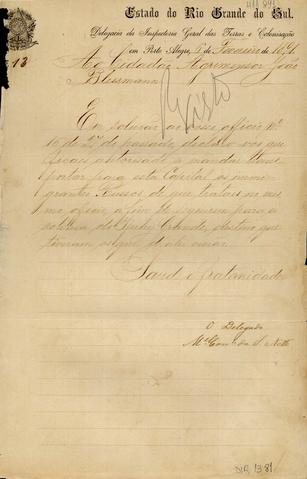 Estado do Rio Grande do Sul.
Delegacia da Inspectoria Geral das Terras e Colonisação
em Porto Alegre, 5 de Fevereiro de 1891
Ao Cidadão Agrimensor João
Bleesmann
Visto
Em solução ao vosso officio Nº
16 de 27 do passado, declaro-vos que
ficais autorisado a mandar trans
portar para esta Capital os immi
grantes Russos, de que tratais no mes
mo officio, a fim de seguirem para a
do Rio Grande, destino que
tiveram
Saude e fraternidade
O Delegado
Mel
DIR 1381